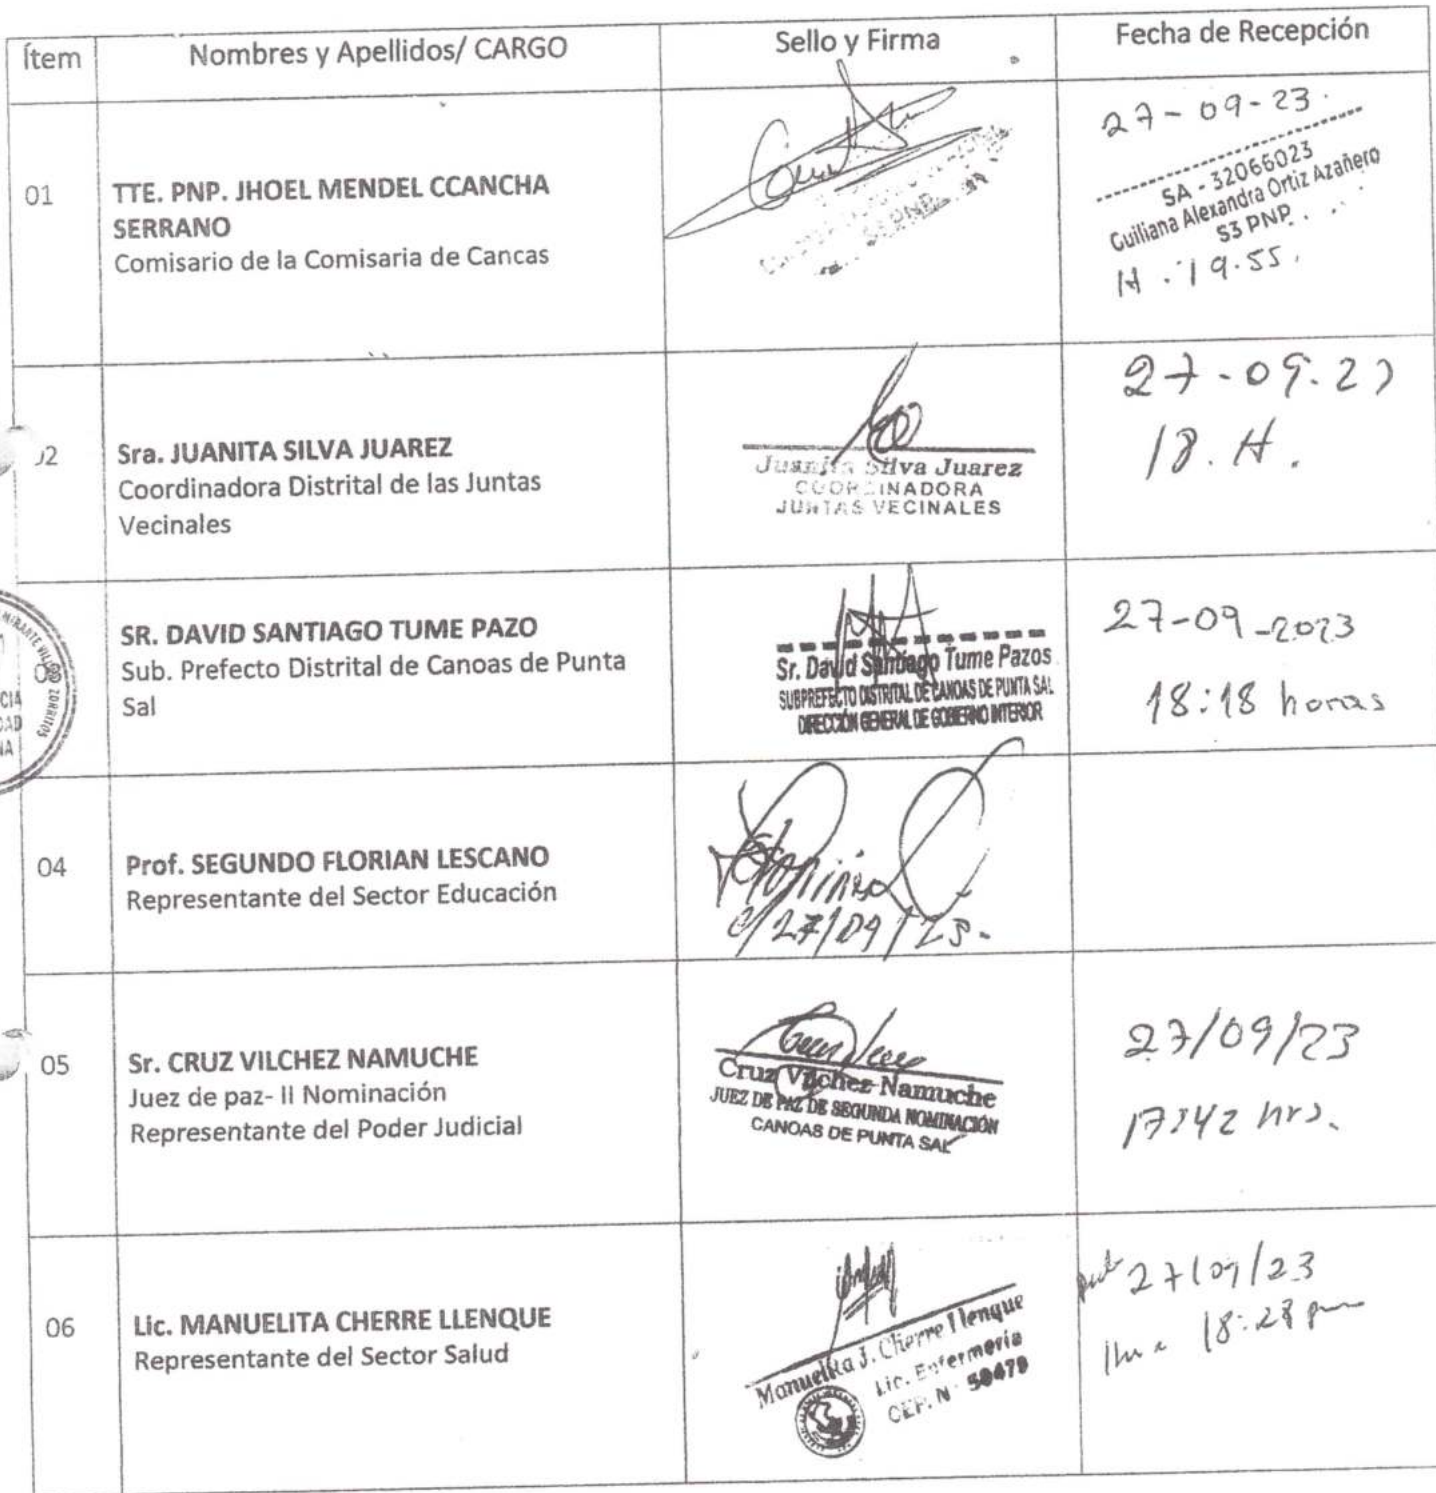 Ítem Nombres y Apellidos/ CARGO Sello y Firma Fecha de Recepción
01
TTE. PNP. JHOEL MENDEL CCANCHA
SERRANO
Comisario de la Comisaria de Cancas
PNP
27-09-23.
SA - 32066023
Guiliana Alexandra Ortiz Azañero
S3 PNP
H. 19.55.
02
Sra. JUANITA SILVA JUAREZ
Coordinadora Distrital de las Juntas
Vecinales
Juanita Silva Juarez
COORDINADORA
JUNTAS VECINALES
27-09-23
18. H.
SR. DAVID SANTIAGO TUME PAZO
Sub. Prefecto Distrital de Canoas de Punta
Sal
Sr. David Santiago Tume Pazos
SUBPREFECTO DISTRITAL DE CANOAS DE PUNTA SAL
DIRECCIÓN GENERAL DE GOBIERNO INTERIOR
27-09-2023
18:18 horas
ZORRITOS
04
Prof. SEGUNDO FLORIAN LESCANO
Representante del Sector Educación
27/09/23.
05
Sr. CRUZ VILCHEZ NAMUCHE
Juez de paz- II Nominación
Representante del Poder Judicial
Cruz Vilchez Namuche
JUEZ DE PAZ DE SEGUNDA NOMINACIÓN
CANOAS DE PUNTA SAL
27/09/23
17:42 hrs.
06
Lic. MANUELITA CHERRE LLENQUE
Representante del Sector Salud
Manuelita J. Cherre Llenque
Lic. Enfermería
CEP. N° 50479
27/09/23
18:28 pm